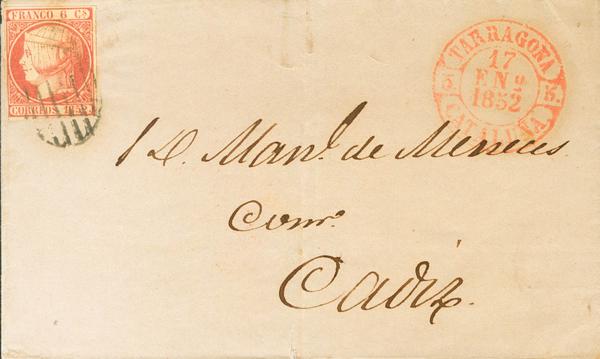 FRANCO 6 Cs
CORREOS
TARRAGONA
17
ENo
1852
CATALUÑA.
D. Manl. de Meneces
Comro.
Cadiz.